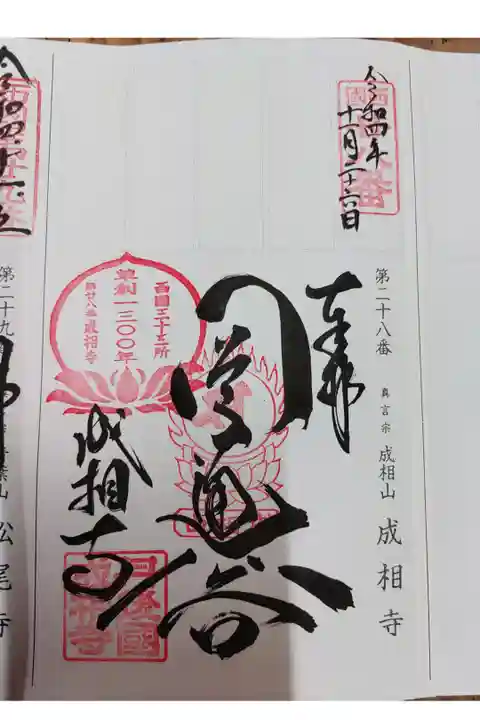 令和四年
十一月二十六日
奉拝
第二十八番 真言宗 成相山 成相寺
圓通谷
成相寺
西國三十三所
草創一三〇〇年
第廿八番 成相寺
令和四年
第二十九
松尾寺